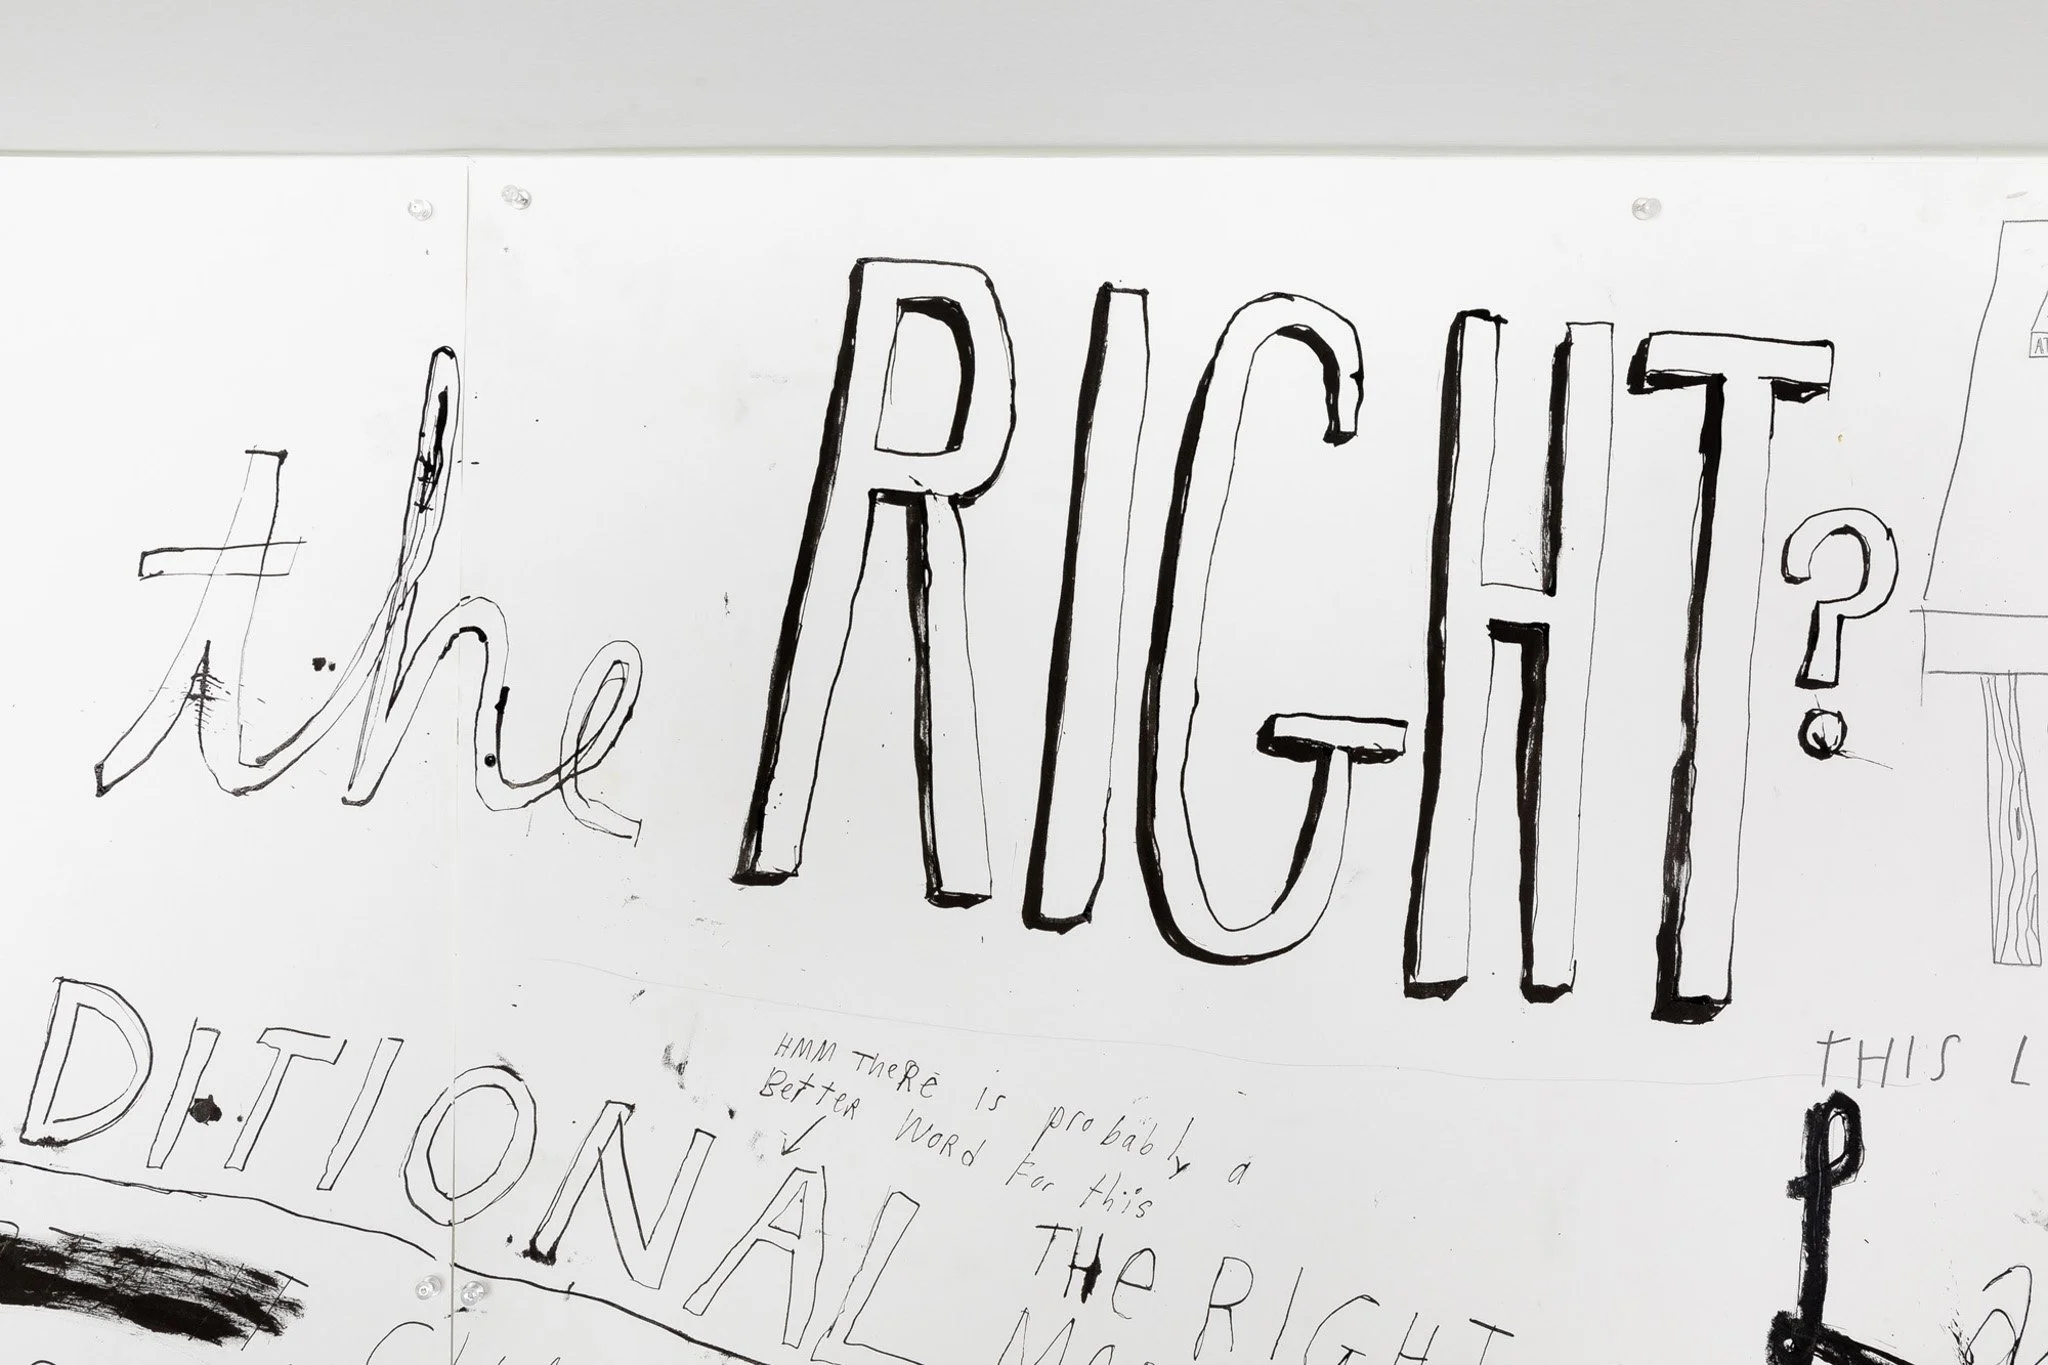 the RIGHT?
DITIONAL
HMM TheRe is probably a
BetteR WoRd For this
THe RIGHT
THIS L